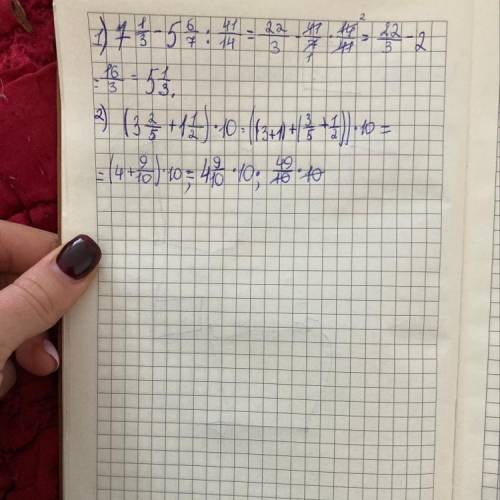 1) 7 1/3 - 5 6/7 : 41/14 = 22/3 - 41/7 1 · 14/41 2 = 22/3 - 2
= 16/3 = 5 1/3.
2) (3 2/5 + 1 1/2) · 10 = ((3+1) + (3/5 + 1/2)) · 10 =
= (4 + 9/10) · 10 = 4 9/10 · 10 ; 49/10 · 10